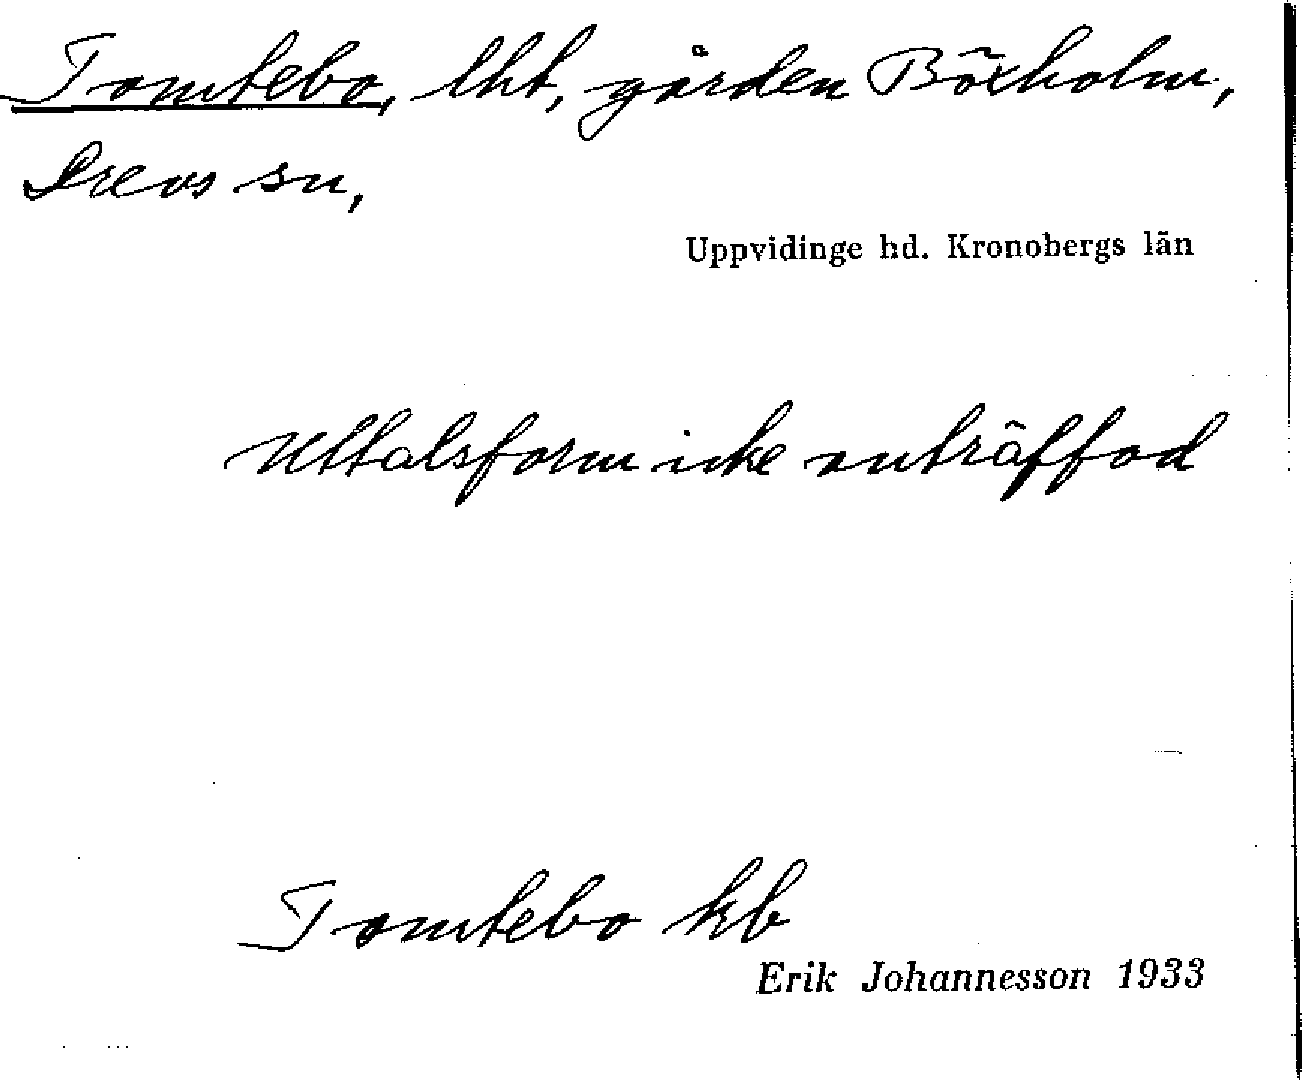 Tomtebo, lht, gården Böxholm,
Drevs sn,
Uppvidinge hd. Kronobergs län
Uttalsform icke anträffad
Tomtebo kb
Erik Johannesson 1933